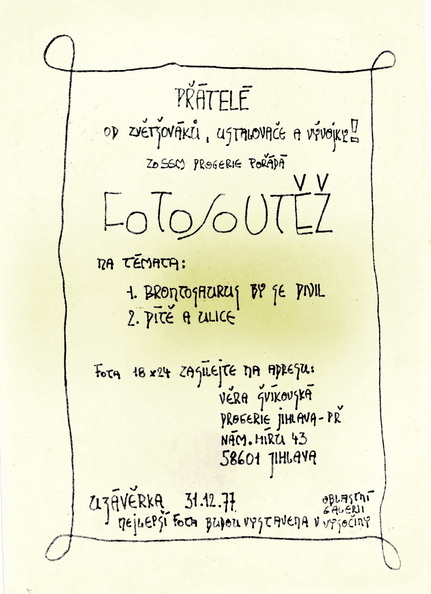 PŘÁTELÉ
OD ZVĚTŠOVÁKŮ, USTALOVAČE A VÝVOJKY!
ZO SSM DROGERIE POŘÁDÁ
FOTOSOUTĚŽ
NA TÉMATA:
1. BRONTOSAURUS BY SE DIVIL
2. DÍTĚ A ULICE
FOTA 18 x 24 ZASÍLEJTE NA ADRESU:
VĚRA ŠVÍKOVSKÁ
DROGERIE JIHLAVA - PŘ
NÁM. MÍRU 43
58601 JIHLAVA
UZÁVĚRKA 31.12.77
NEJLEPŠÍ FOTA BUDOU VYSTAVENA V OBLASTNÍ
GALERII
VYSOČINY